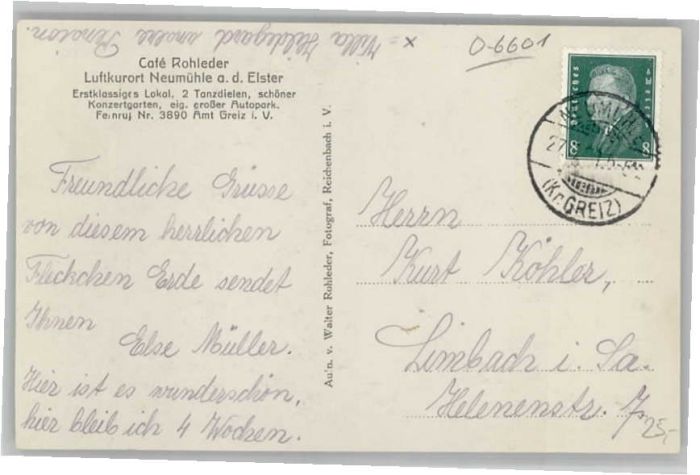 x = Villa Hildegard unsere Pension.
0-6601
Café Rohleder
Luftkurort Neumühle a. d. Elster
Erstklassiges Lokal, 2 Tanzdielen, schöner
Konzertgarten, eig. großer Autopark.
Fernruf Nr. 3890 Amt Greiz i. V.
Freundliche Grüsse
von diesem herrlichen
Fleckchen Erde sendet
Ihnen
Else Müller.
Hier ist es wunderschön,
hier bleib ich 4 Wochen.
Aufn. v. Walter Rohleder, Fotograf, Reichenbach i. V.
8 8
NEUMÜHLE
(Kr. GREIZ)
Herrn
Kurt Köhler,
Limbach i. Sa.
Helenenstr. 7